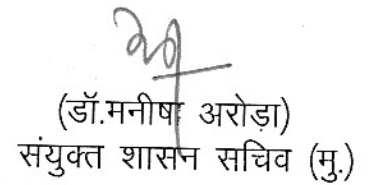 (डॉ.मनीषा अरोड़ा)
संयुक्त शासन सचिव (मु.)